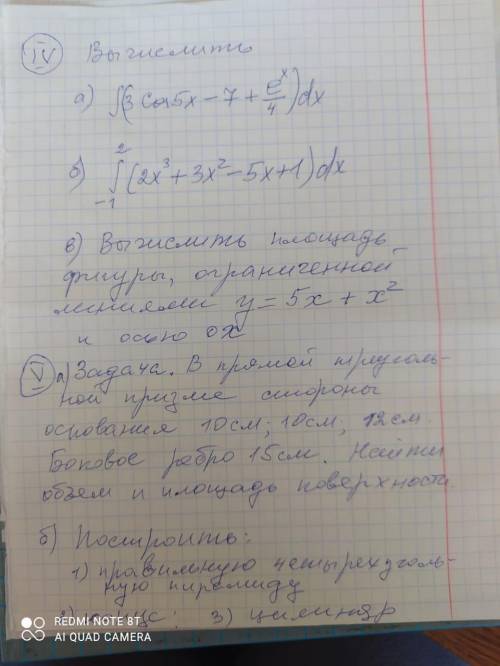 IV Вычислить
а) ∫(3 cos5x − 7 + e^x/4)dx
б) ∫_{-1}^{2} (2x³ + 3x² − 5x + 1)dx
в) Вычислить площадь
фигуры, ограниченной
линиями y = 5x + x²
и осью ox
V а) Задача. В прямой треуголь-
ной призме стороны
основания 10см; 10см; 12см.
Боковое ребро 15см. Найти
объем и площадь поверхности.
б) Построить:
1) правильную четырехуголь-
ную пирамиду
2) конус; 3) цилиндр
REDMI NOTE 8T
AI QUAD CAMERA